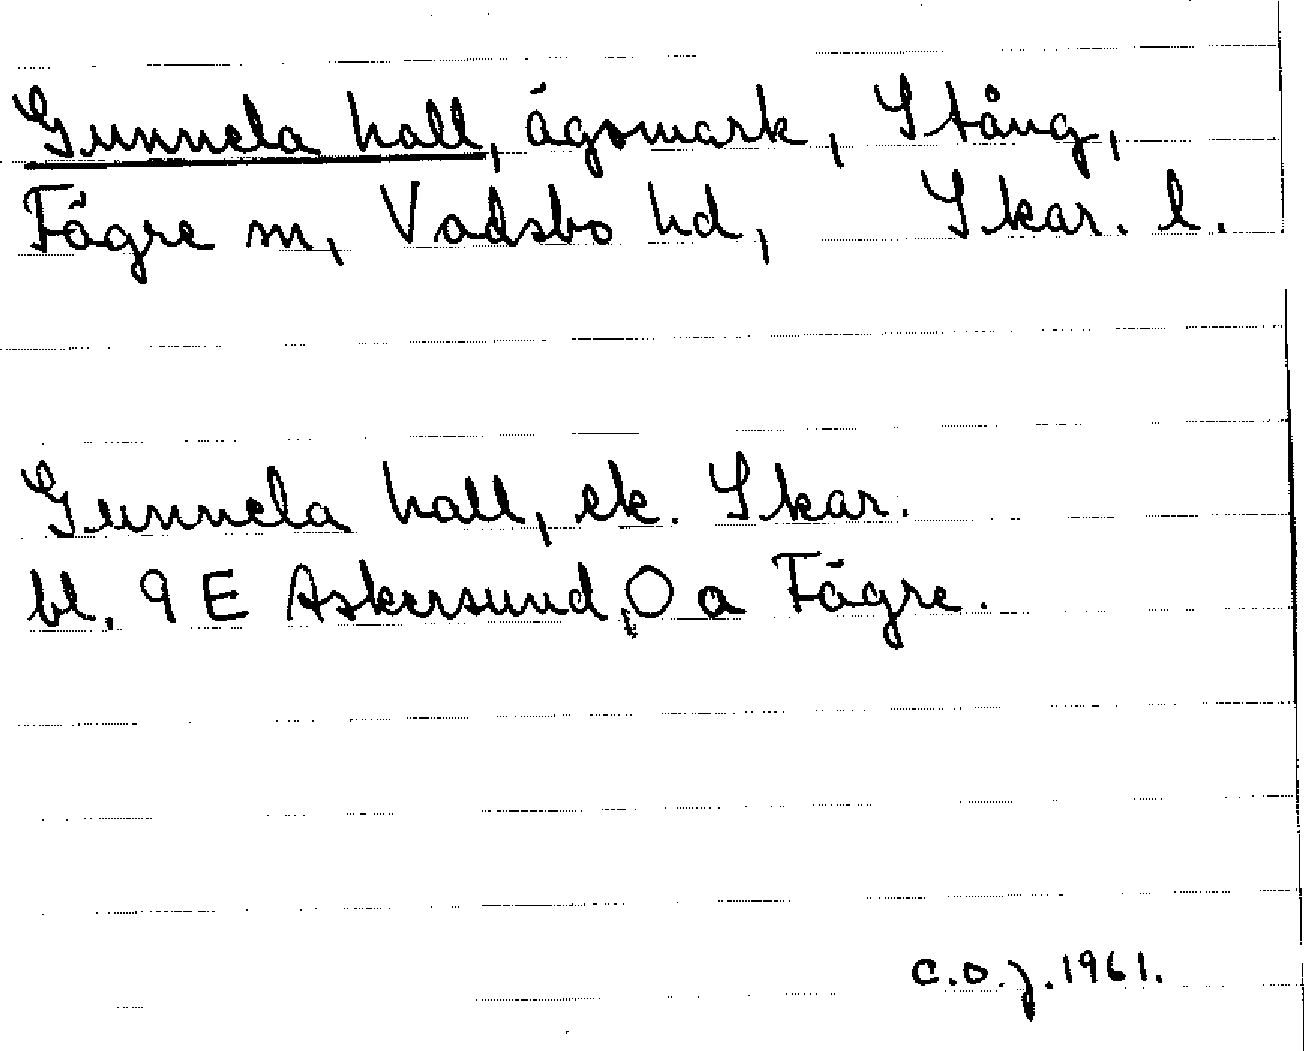 Gunnela hall, ägomark, Stång,
Fägre sn, Vadsbo hd, Skar. l.
Gunnela hall, ek. Skar.
bl. 9 E Askersund, 0 a Fägre.
C.O.J. 1961.